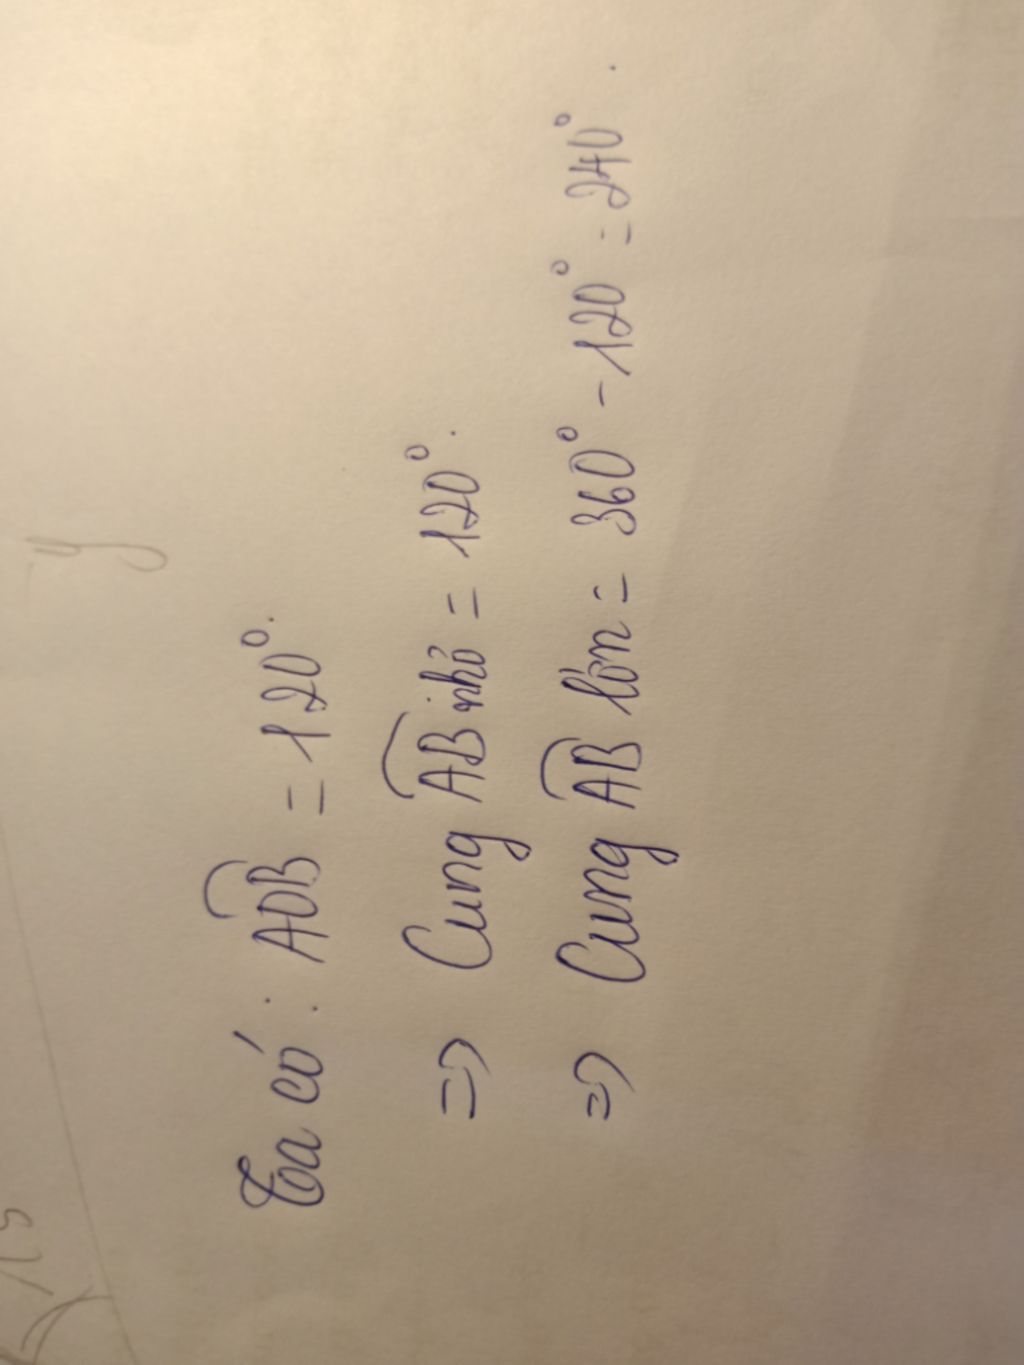 Ta có: AOB = 120°.
=> Cung AB nhỏ = 120°.
=> Cung AB lớn = 360° - 120° = 240°.